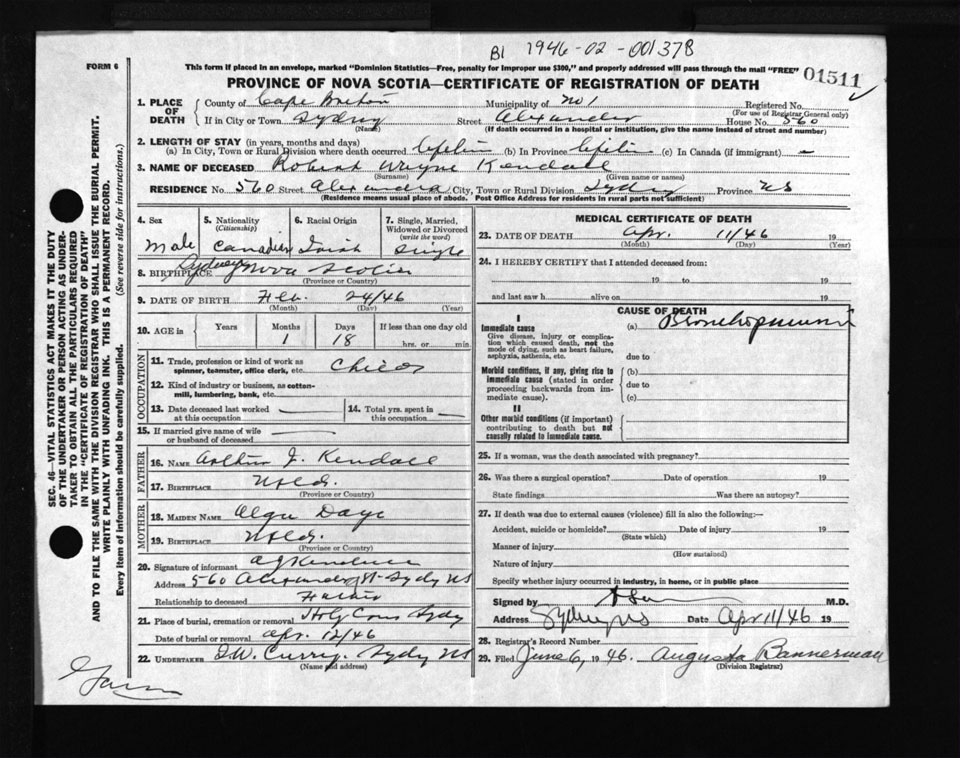 B1 1946-02-001378
FORM 6
This form if placed in an envelope, marked "Dominion Statistics—Free, penalty for improper use $300," and properly addressed will pass through the mail "FREE"
01511
PROVINCE OF NOVA SCOTIA—CERTIFICATE OF REGISTRATION OF DEATH
SEC. 46—VITAL STATISTICS ACT MAKES IT THE DUTY
OF THE UNDERTAKER OR PERSON ACTING AS UNDER-
TAKER TO OBTAIN ALL THE PARTICULARS REQUIRED
IN THE "CERTIFICATE OF REGISTRATION OF DEATH"
AND TO FILE THE SAME WITH THE DIVISION REGISTRAR WHO SHALL ISSUE THE BURIAL PERMIT.
WRITE PLAINLY WITH UNFADING INK. THIS IS A PERMANENT RECORD.
Every item of information should be carefully supplied. (See reverse side for instructions.)
1. PLACE OF DEATH
County of Cape Breton Municipality of No 1 Registered No.
(For use of Registrar General only)
If in City or Town Sydney Street Alexander House No. 560
(Name) (If death occurred in a hospital or institution, give the name instead of street and number)
2. LENGTH OF STAY (in years, months and days)
(a) In City, Town or Rural Division where death occurred Lifetime (b) In Province Lifetime (c) In Canada (if immigrant) —
3. NAME OF DECEASED Robert Wayne Kendall
(Surname) (Given name or names)
RESIDENCE No 560 Street Alexandra City, Town or Rural Division Sydney Province NS
(Residence means usual place of abode. Post Office Address for residents in rural parts not sufficient)
4. Sex
Male
5. Nationality
(Citizenship)
Canadian
6. Racial Origin
Irish
7. Single, Married,
Widowed or Divorced
(write the word)
Single
8. BIRTHPLACE Sydney Nova Scotia
(Province or Country)
9. DATE OF BIRTH Feb. 24/46
(Month) (Day) (Year)
10. AGE in
Years Months Days If less than one day old
1 18 hrs. or min.
OCCUPATION
11. Trade, profession or kind of work as
spinner, teamster, office clerk, etc. Child
12. Kind of industry or business, as cotton-
mill, lumbering, bank, etc.
13. Date deceased last worked
at this occupation
14. Total yrs. spent in
this occupation
15. If married give name of wife
or husband of deceased
FATHER
16. NAME Arthur J. Kendall
17. BIRTHPLACE Nfld.
(Province or Country)
MOTHER
18. MAIDEN NAME Olga Daye
19. BIRTHPLACE Nfld.
(Province or Country)
20. Signature of informant AJ Kendall
Address 560 Alexander St Sydy NS
Relationship to deceased Father
21. Place of burial, cremation or removal Holy Cross Sydy
Date of burial or removal Apr. 12/46
22. UNDERTAKER T.W. Curry. Sydy NS
(Name and address)
MEDICAL CERTIFICATE OF DEATH
23. DATE OF DEATH Apr. 11/46 19
(Month) (Day) (Year)
24. I HEREBY CERTIFY that I attended deceased from:
19 to 19
and last saw h alive on 19
CAUSE OF DEATH
I
Immediate cause
Give disease, injury or complica-
tion which caused death, not the
mode of dying, such as heart failure,
asphyxia, asthenia, etc.
(a) Bronchopneumonia
due to
Morbid conditions, if any, giving rise to
immediate cause (stated in order
proceeding backwards from im-
mediate cause).
(b)
due to
(c)
II
Other morbid conditions (if important)
contributing to death but not
causally related to immediate cause.
25. If a woman, was the death associated with pregnancy?
26. Was there a surgical operation? Date of operation 19
State findings Was there an autopsy?
27. If death was due to external causes (violence) fill in also the following:—
Accident, suicide or homicide? Date of injury 19
(State which)
Manner of injury
(How sustained)
Nature of injury
Specify whether injury occurred in industry, in home, or in public place
Signed by M.D.
Address Sydney NS Date Apr 11/46 19
28. Registrar's Record Number
29. Filed June 6, 1946. Augusta Bannerman
(Division Registrar)